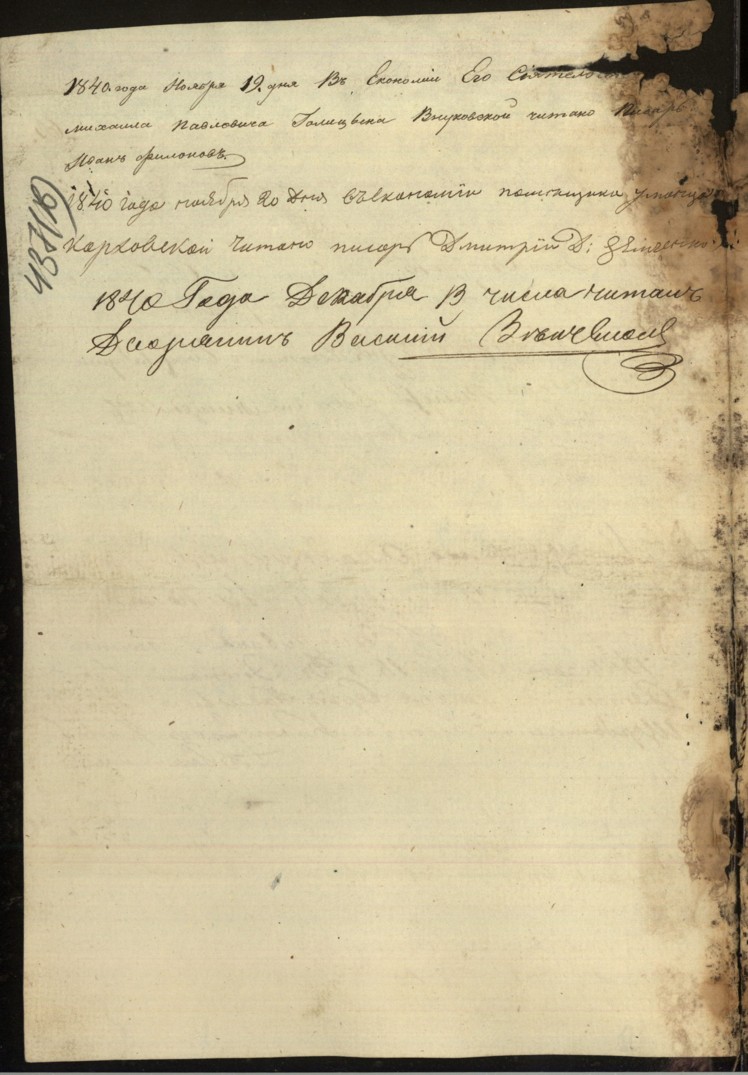 1840. года Ноября 19. дня Въ Економіи Его Сіятельс
михаила Павловича Голицына Внуковской читано Писарь
Иванъ Филоновъ.
437(16)
1840 года ноября 20 Дня въ економіи помещика
Харковской Читано писарь Дмитрій Д:
1840 Года Декабря числа читалъ
Дворянинъ Василий